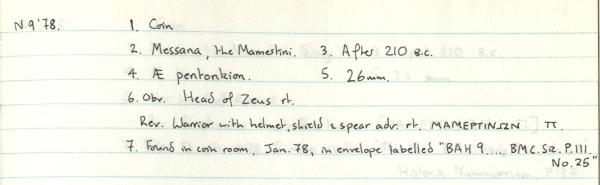 N 9'78. 1. Coin
2. Messana, the Mamertini. 3. After 210 B.C.
4. Æ pentonkion. 5. 26mm.
6. Obv. Head of Zeus rt.
Rev. Warrior with helmet, shield & spear adv. rt. ΜΑΜΕΡΤΙΝΩΝ Π.
7. Found in coin room, Jan. 78, in envelope labelled "BAH 9.... BMC. Sic. P.111.
No. 25"